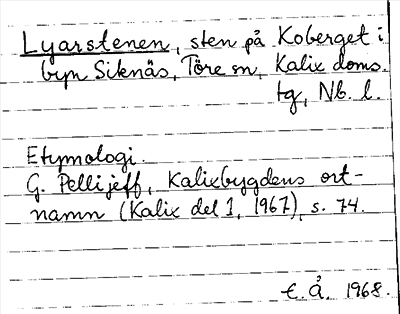 Lyarstenen, sten på Koberget i
byn Siknäs, Töre sn, Kalix doms.
tg, Nb. l.
Etymologi.
G. Pellijeff, Kalixbygdens ort-
namn (Kalix del 1, 1967), s. 74.
E. Å. 1968.